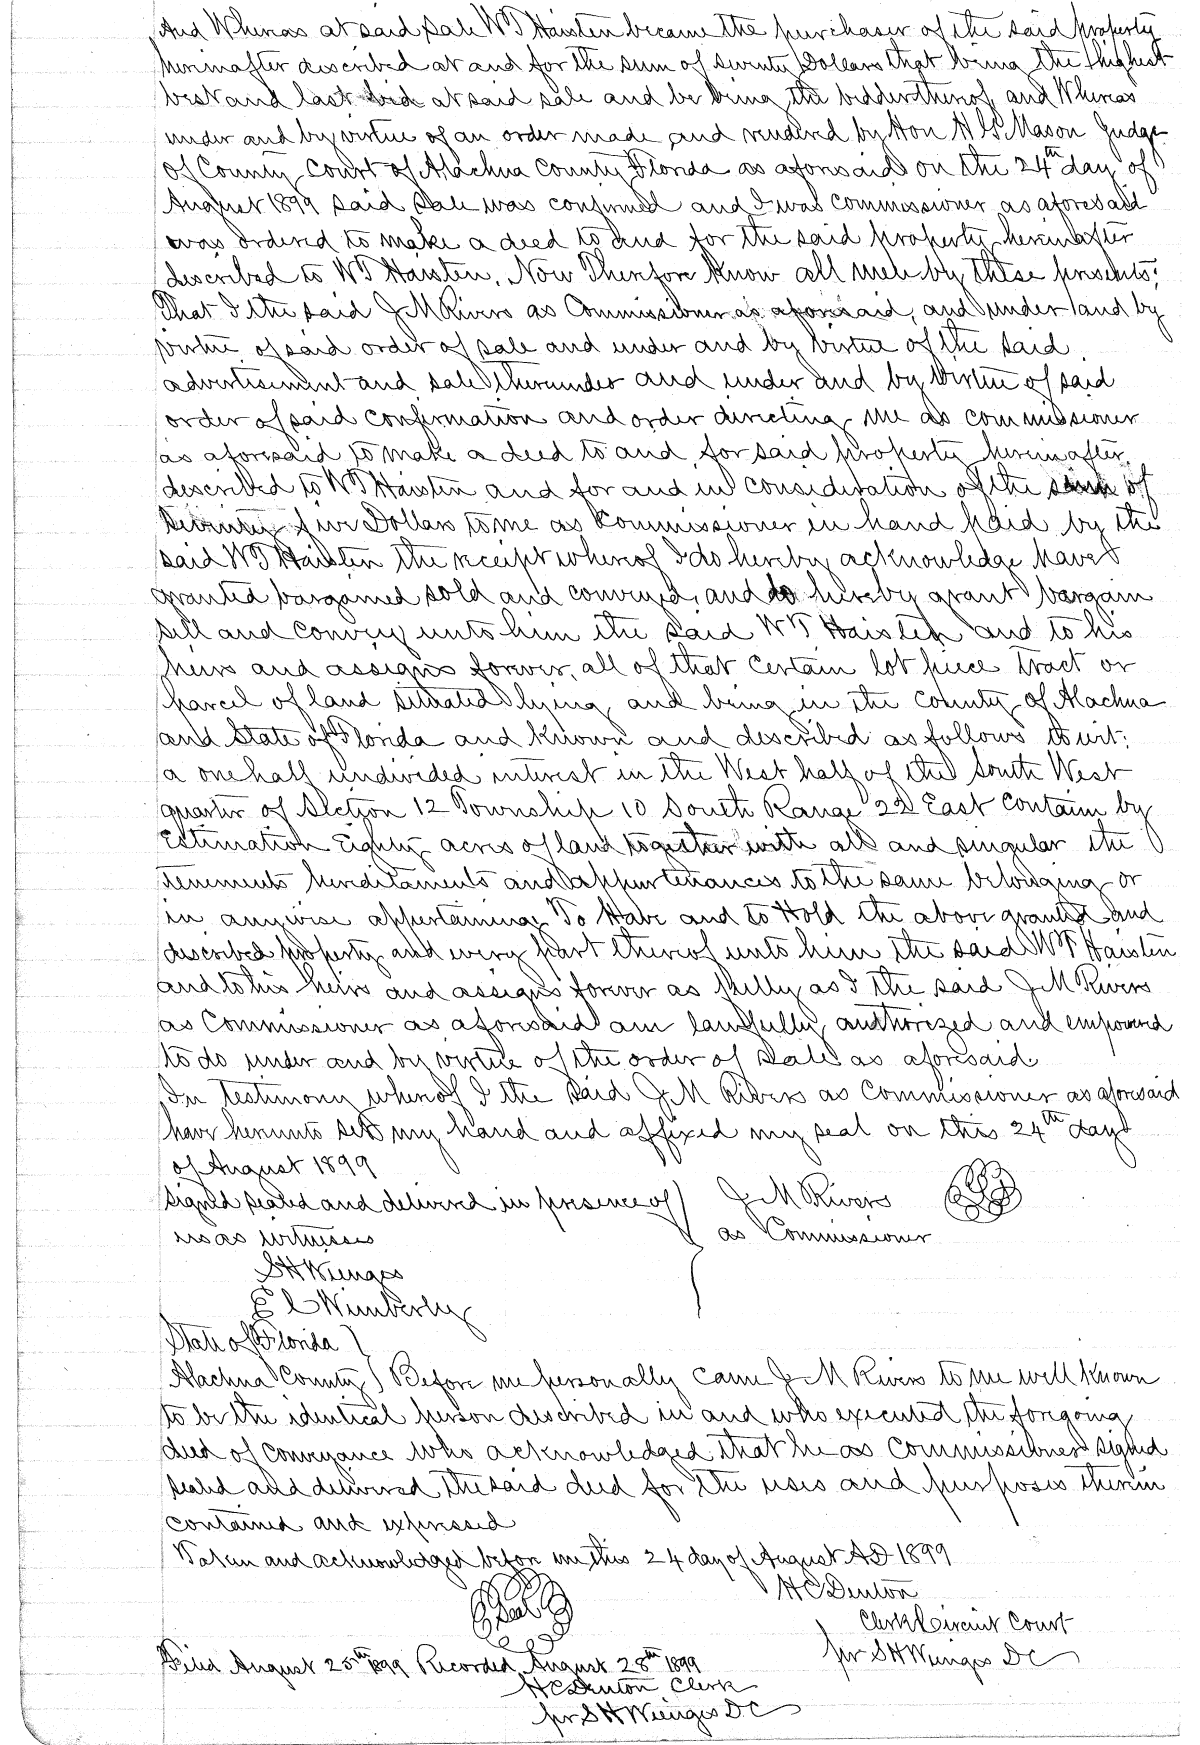 And Whereas at said sale WT Haisten became the purchaser of the said property
hereinafter described at and for the sum of seventy Dollars that being the highest
best and last bid at said sale and he being the bidder thereof and Whereas
under and by virtue of an order made and rendered by Hon H G Mason Judge
of County Court of Alachua County Florida as aforesaid on the 24th day of
August 1899 said sale was confirmed and I was commissioner as aforesaid
was ordered to make a deed to and for the said property hereinafter
described to WT Haisten. Now Therefore Know all men by these presents;
That I the said J M Rivers as Commissioner as aforesaid, and under and by
virtue of said order of sale and under and by virtue of the said
advertisement and sale thereunder and under and by virtue of said
order of said confirmation and order directing me as commissioner
as aforesaid to make a deed to and for said property hereinafter
described to WT Haisten and for and in consideration of the sum of
Seventy five Dollars to me as Commissioner in hand paid by the
said WT Haisten the receipt whereof I do hereby acknowledge have
granted bargained sold and conveyed and do hereby grant bargain
sell and convey unto him the said WT Haisten and to his
heirs and assigns forever, all of that certain lot piece tract or
parcel of land situated lying and being in the County of Alachua
and State of Florida and known and described as follows to wit;
a one half undivided interest in the West half of the South West
quarter of Section 12 Township 10 South Range 22 East contain by
Estimation Eighty acres of land together with all and singular the
tenements hereditaments and appurtenances to the same belonging or
in anywise appertaining To Have and to Hold the above granted and
described property and every part thereof unto him the said WT Haisten
and to his heirs and assigns forever as fully as I the said J M Rivers
as Commissioner as aforesaid am lawfully authorized and empowered
to do under and by virtue of the order of sale as aforesaid
In testimony whereof I the said J M Rivers as Commissioner as aforesaid
have hereunto set my hand and affixed my seal on this 24th day
of August 1899
signed sealed and delivered in presence of ) J M Rivers
us as witnesses as Commissioner
S H Wienges
E L Wimberly
State of Florida )
Alachua County ) Before me personally came J M Rivers to me well known
to be the identical person described in and who executed the foregoing
deed of conveyance who acknowledged that he as Commissioner signed
sealed and delivered the said deed for the uses and purposes therein
contained and expressed
Taken and acknowledged before me this 24 day of August AD 1899
H C Denton
Seal
Clerk Circuit Court
per S H Wienges DC
Filed August 25th 1899 Recorded August 28th 1899
H C Denton Clerk
per S H Wienges DC